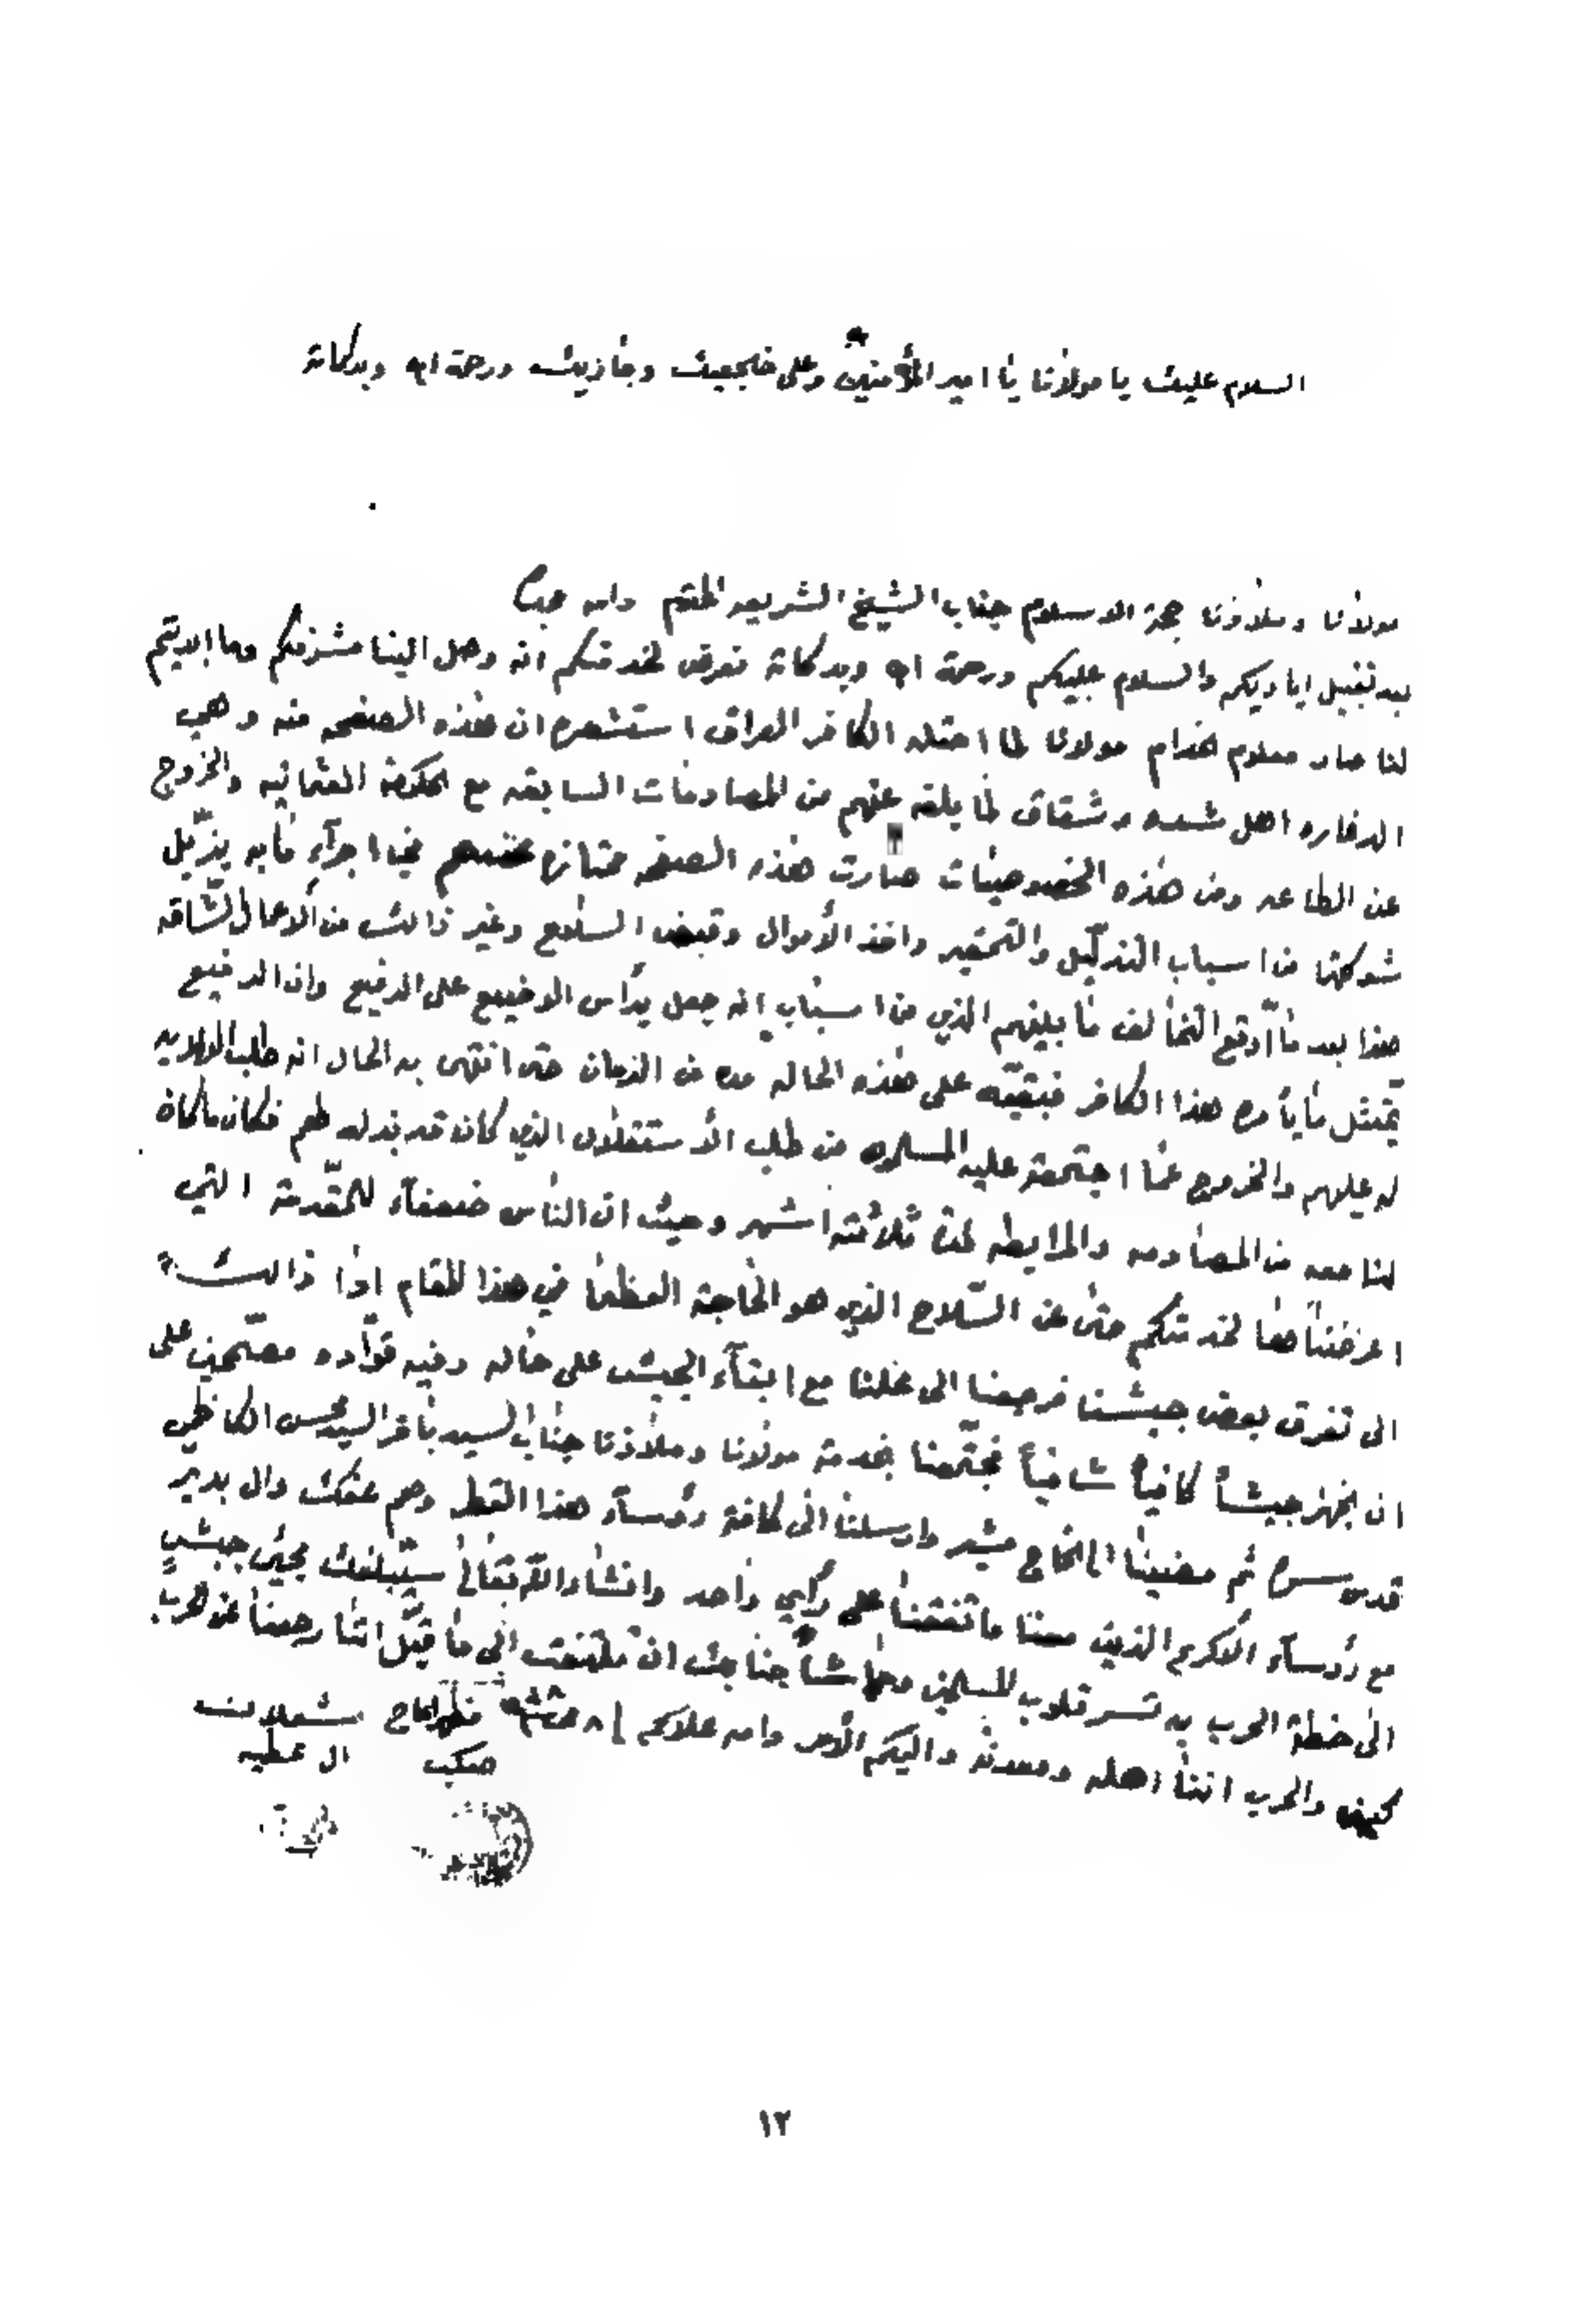 السلام عليك يا مولانا يا امير المؤمنين وعلى ضجيعيك وجاريك ورحمة الله وبركاته
مولانا وملاذنا حجة الاسلام جناب الشيخ الشريعه المحترم دامه
بعد تقبيل اياديكم والسلام عليكم ورحمة الله وبركاته نعرض لخدمتكم انه وصل الينا مشرفكم وما ابديتم
لنا صار معلوم لخدام مولانا لما احتله الكافر العراق استشعره ان هذه الصفحه منه وهي
اهل شده وشقاق لما بلغه عنهم من المصادمات السابقه مع الحكومة العثمانيه والخروج
عن الطاعه ومن هذه الخصوصيات صارت هذه الصفحه ممتازه عندهم في اجرآء ما به يذلّل
شوكتها من اسباب التذليل والتحقير واخذ الأموال وقبض السلاح وغير ذالك من الأعمال الشّاقه
هذا بعد ما اوقع التخالف ما بينهم الذي من اسبابه انه جعل يرأس الوضيع على الرفيع وان الرفيع
يمتثل ما يأمره هذا الكافر فبقيته على هذه الحاله مده من الزمان حتى انتهى به الحال انه طلب
له عليهم والخروج عما اجتمعة عليه من طلب الأستقلال الذي كان قد بذله لهم فكان ماكان
لنا معه من المصادمه والمرابطه لمدة ثلاثة اشهر وحيث ان الناس ضعفآء للمقدمة التي
اعرضناها لخدمتكم حتى عن السّلاح الذي هو الحاجة العظما في هذا المقام ادّا ذالك
الى تفرق بعض جيشنا فرجعنا الى محلنا مع ابقآء الجيش على حاله وفيه قوّاده مصمّمين على
ان نجهز جيشاً كافياً شافياً فجتمعنا بخدمة مولانا وملاذنا جناب السيد باقر السيد محسن الكاظمي
قدس سره ثم مضينا الى الحاج مشير وارسلنا الى كافة رؤسآء هذا القطر وهم عفك وال بدير
مع رؤسآء الذين معنا فاتفقنا على رأي واحد وانشاء الله تعالى سيبلغك بجيئ جيش
الى خطة الحرب به تسر قلوب المسلمين وحاشا جنابك ان تلتفت الى ما قيل اننا رجعنا
والحرب اننا اهله ومعدنه واليكم الأمر دامه علاكم
مظهر الحاج
صكب
شعلان
ال عطيه
١٢